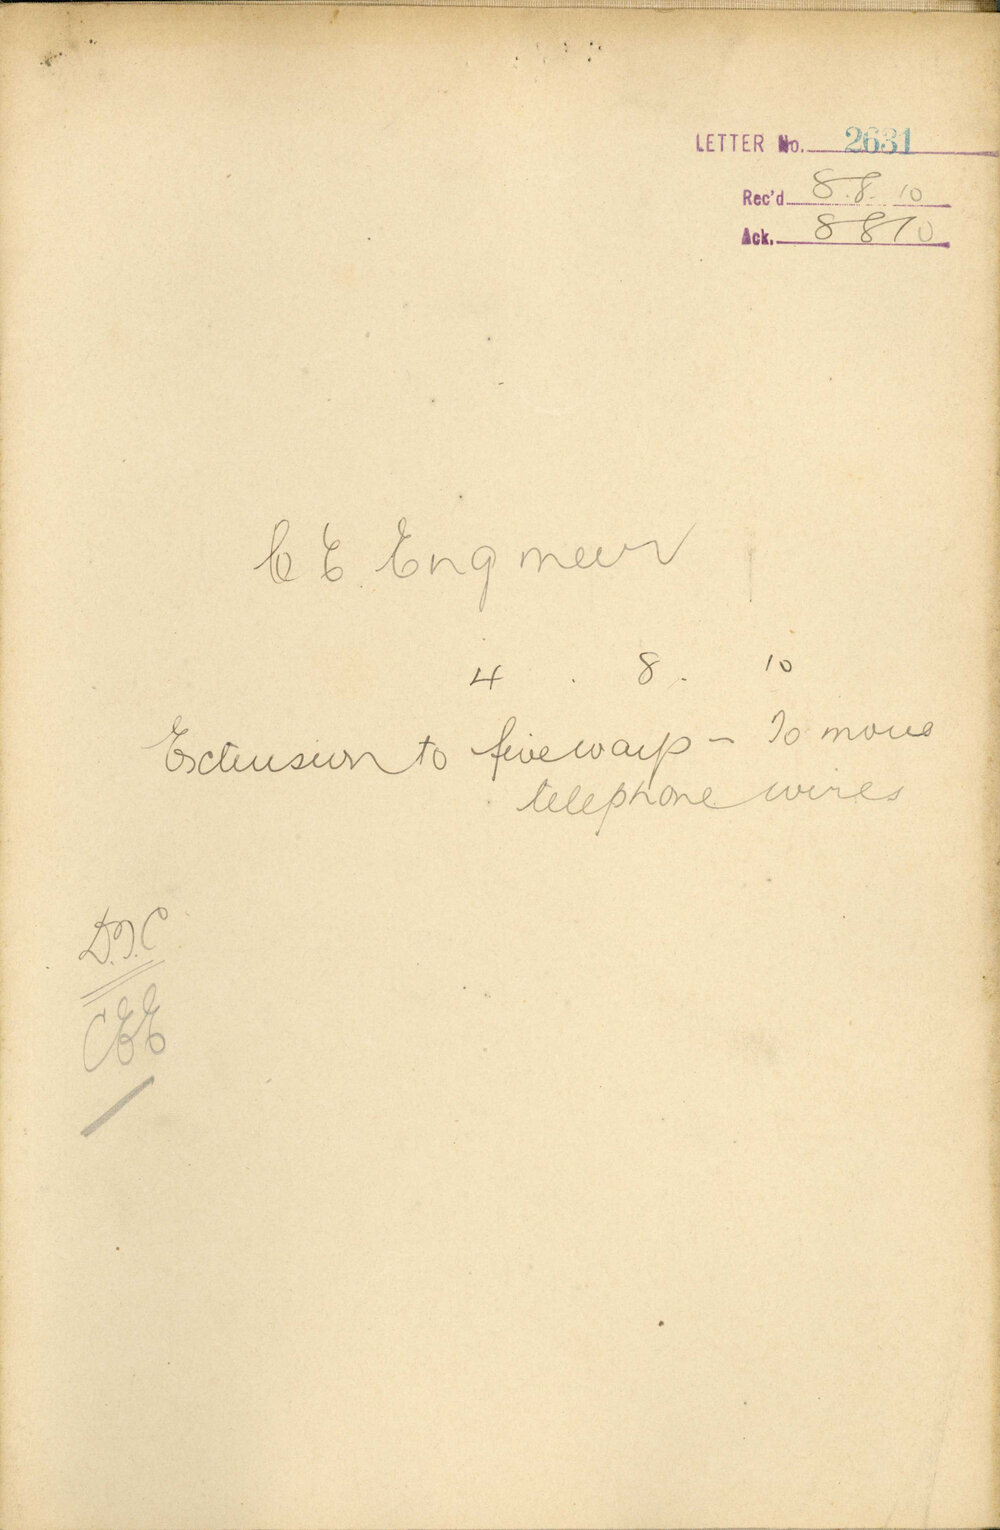 LETTER No. 2631
Rec'd 8.8.10
Ack. 8 8 10
C E Engineer
4 . 8. 10
Extension to fiveways - To move
telephone wires
D.T.C
CEE